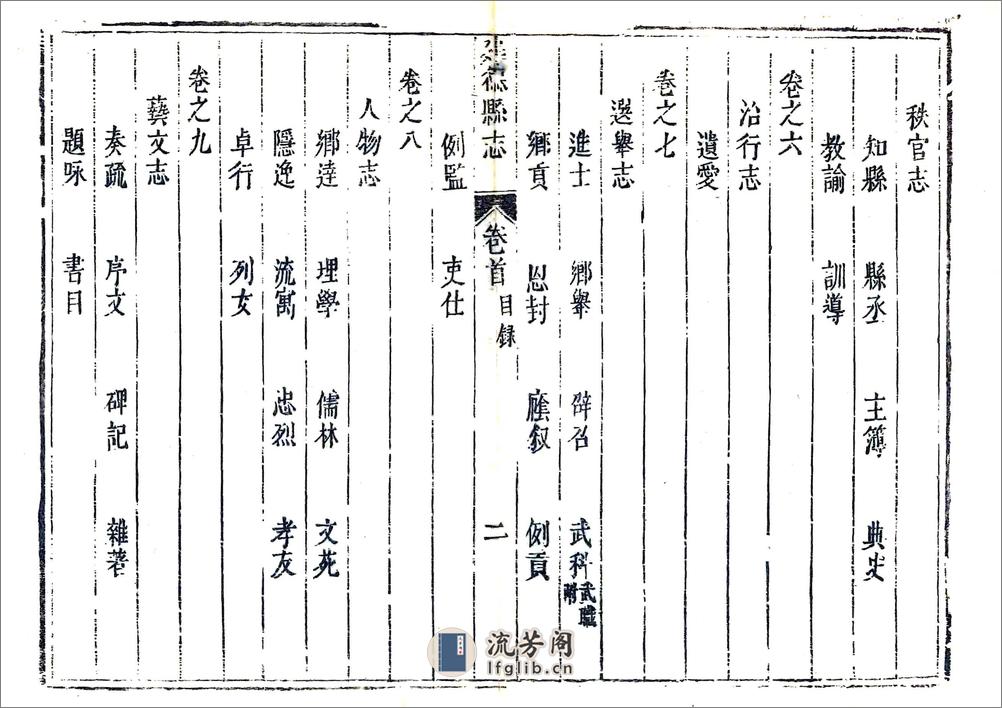 秩官志
知縣 縣丞 主簿 典史
教諭 訓導
卷之六
治行志
遺愛
卷之七
選舉志
進士 鄉舉 辟召 武科 武職附
鄉貢 恩封 廕叙 例貢
建德縣志 卷首 目録 二
例監 吏仕
卷之八
人物志
鄉達 理學 儒林 文苑
隱逸 流寓 忠烈 孝友
卓行 列女
卷之九
藝文志
奏疏 序文 碑記 雜著
題咏 書目
流芳阁
lfglib.cn